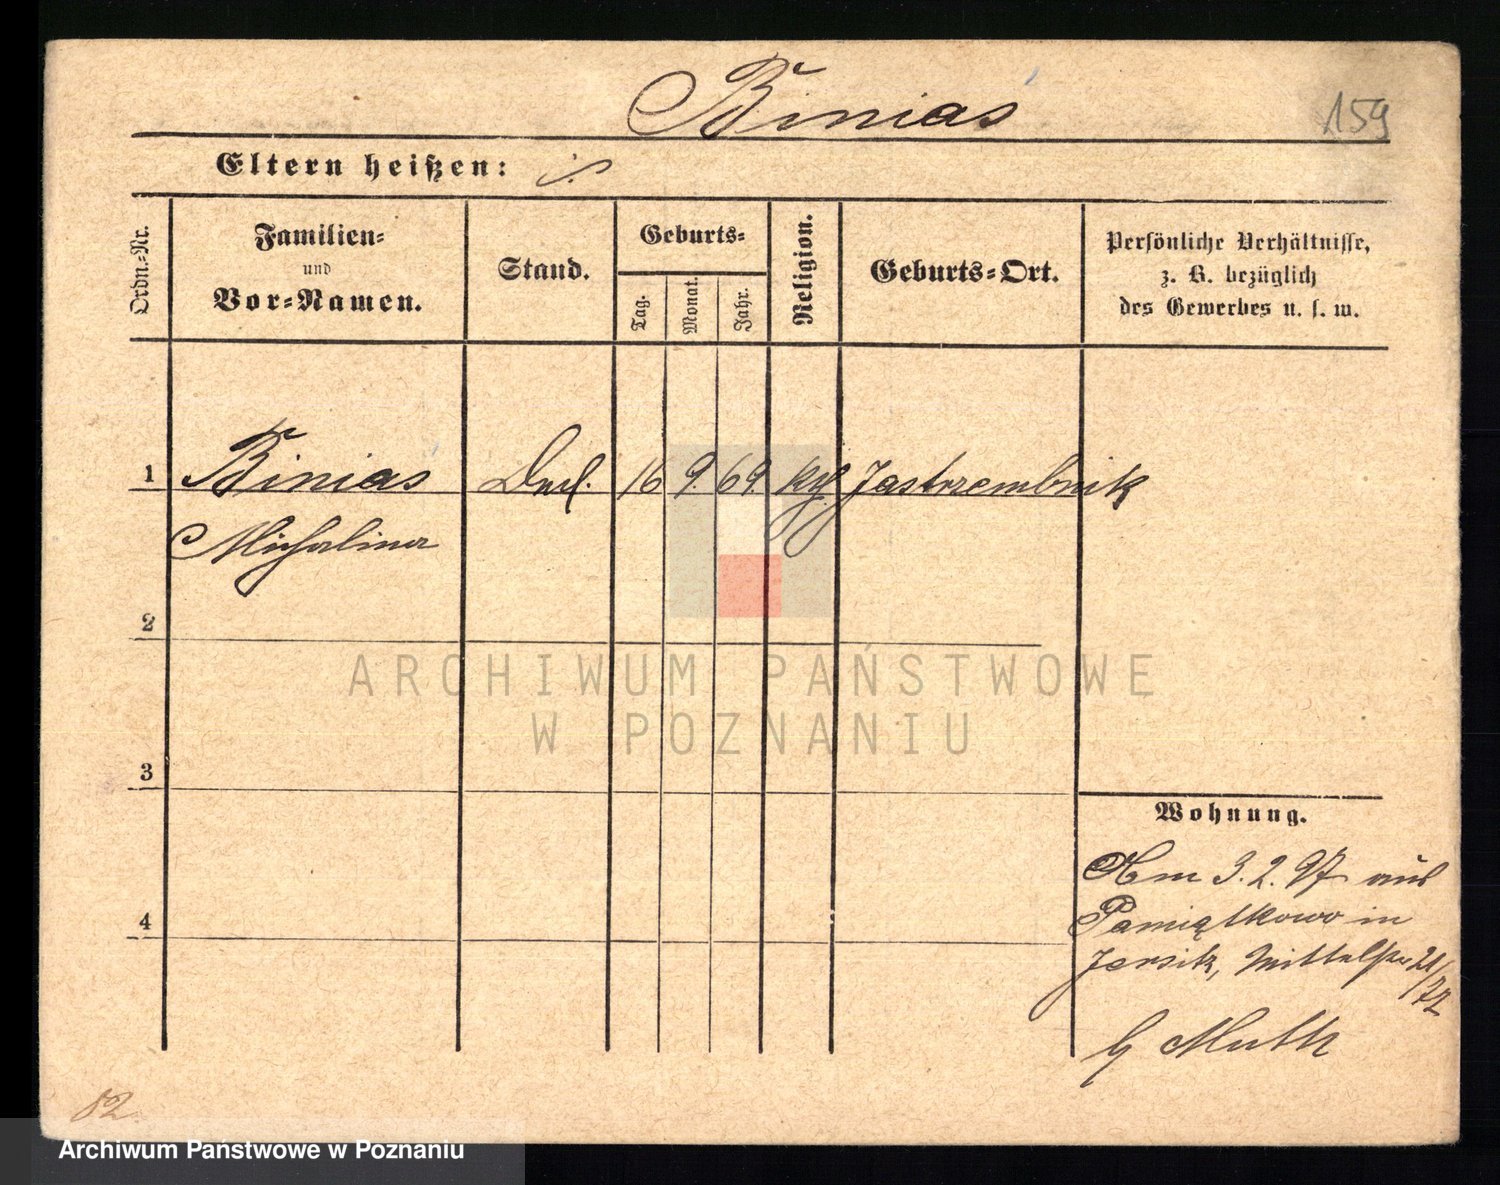 Binias
159
Eltern heißen:
Ordn.-Nr.
Familien-
und
Vor-Namen.
Stand.
Geburts-
Tag.
Monat.
Jahr.
Religion.
Geburts-Ort.
Persönliche Verhältnisse,
z. B. bezüglich
des Gewerbes u. s. w.
1 Binias 16 9. 69. Jastrzembnik
Michalina
2
3
4
Wohnung.
Am 3. 2. 97 aus
Pamiątkowo in
Jersitz, Mittelstr 21/
b Muth
82
ARCHIWUM PAŃSTWOWE
W POZNANIU
Archiwum Państwowe w Poznaniu